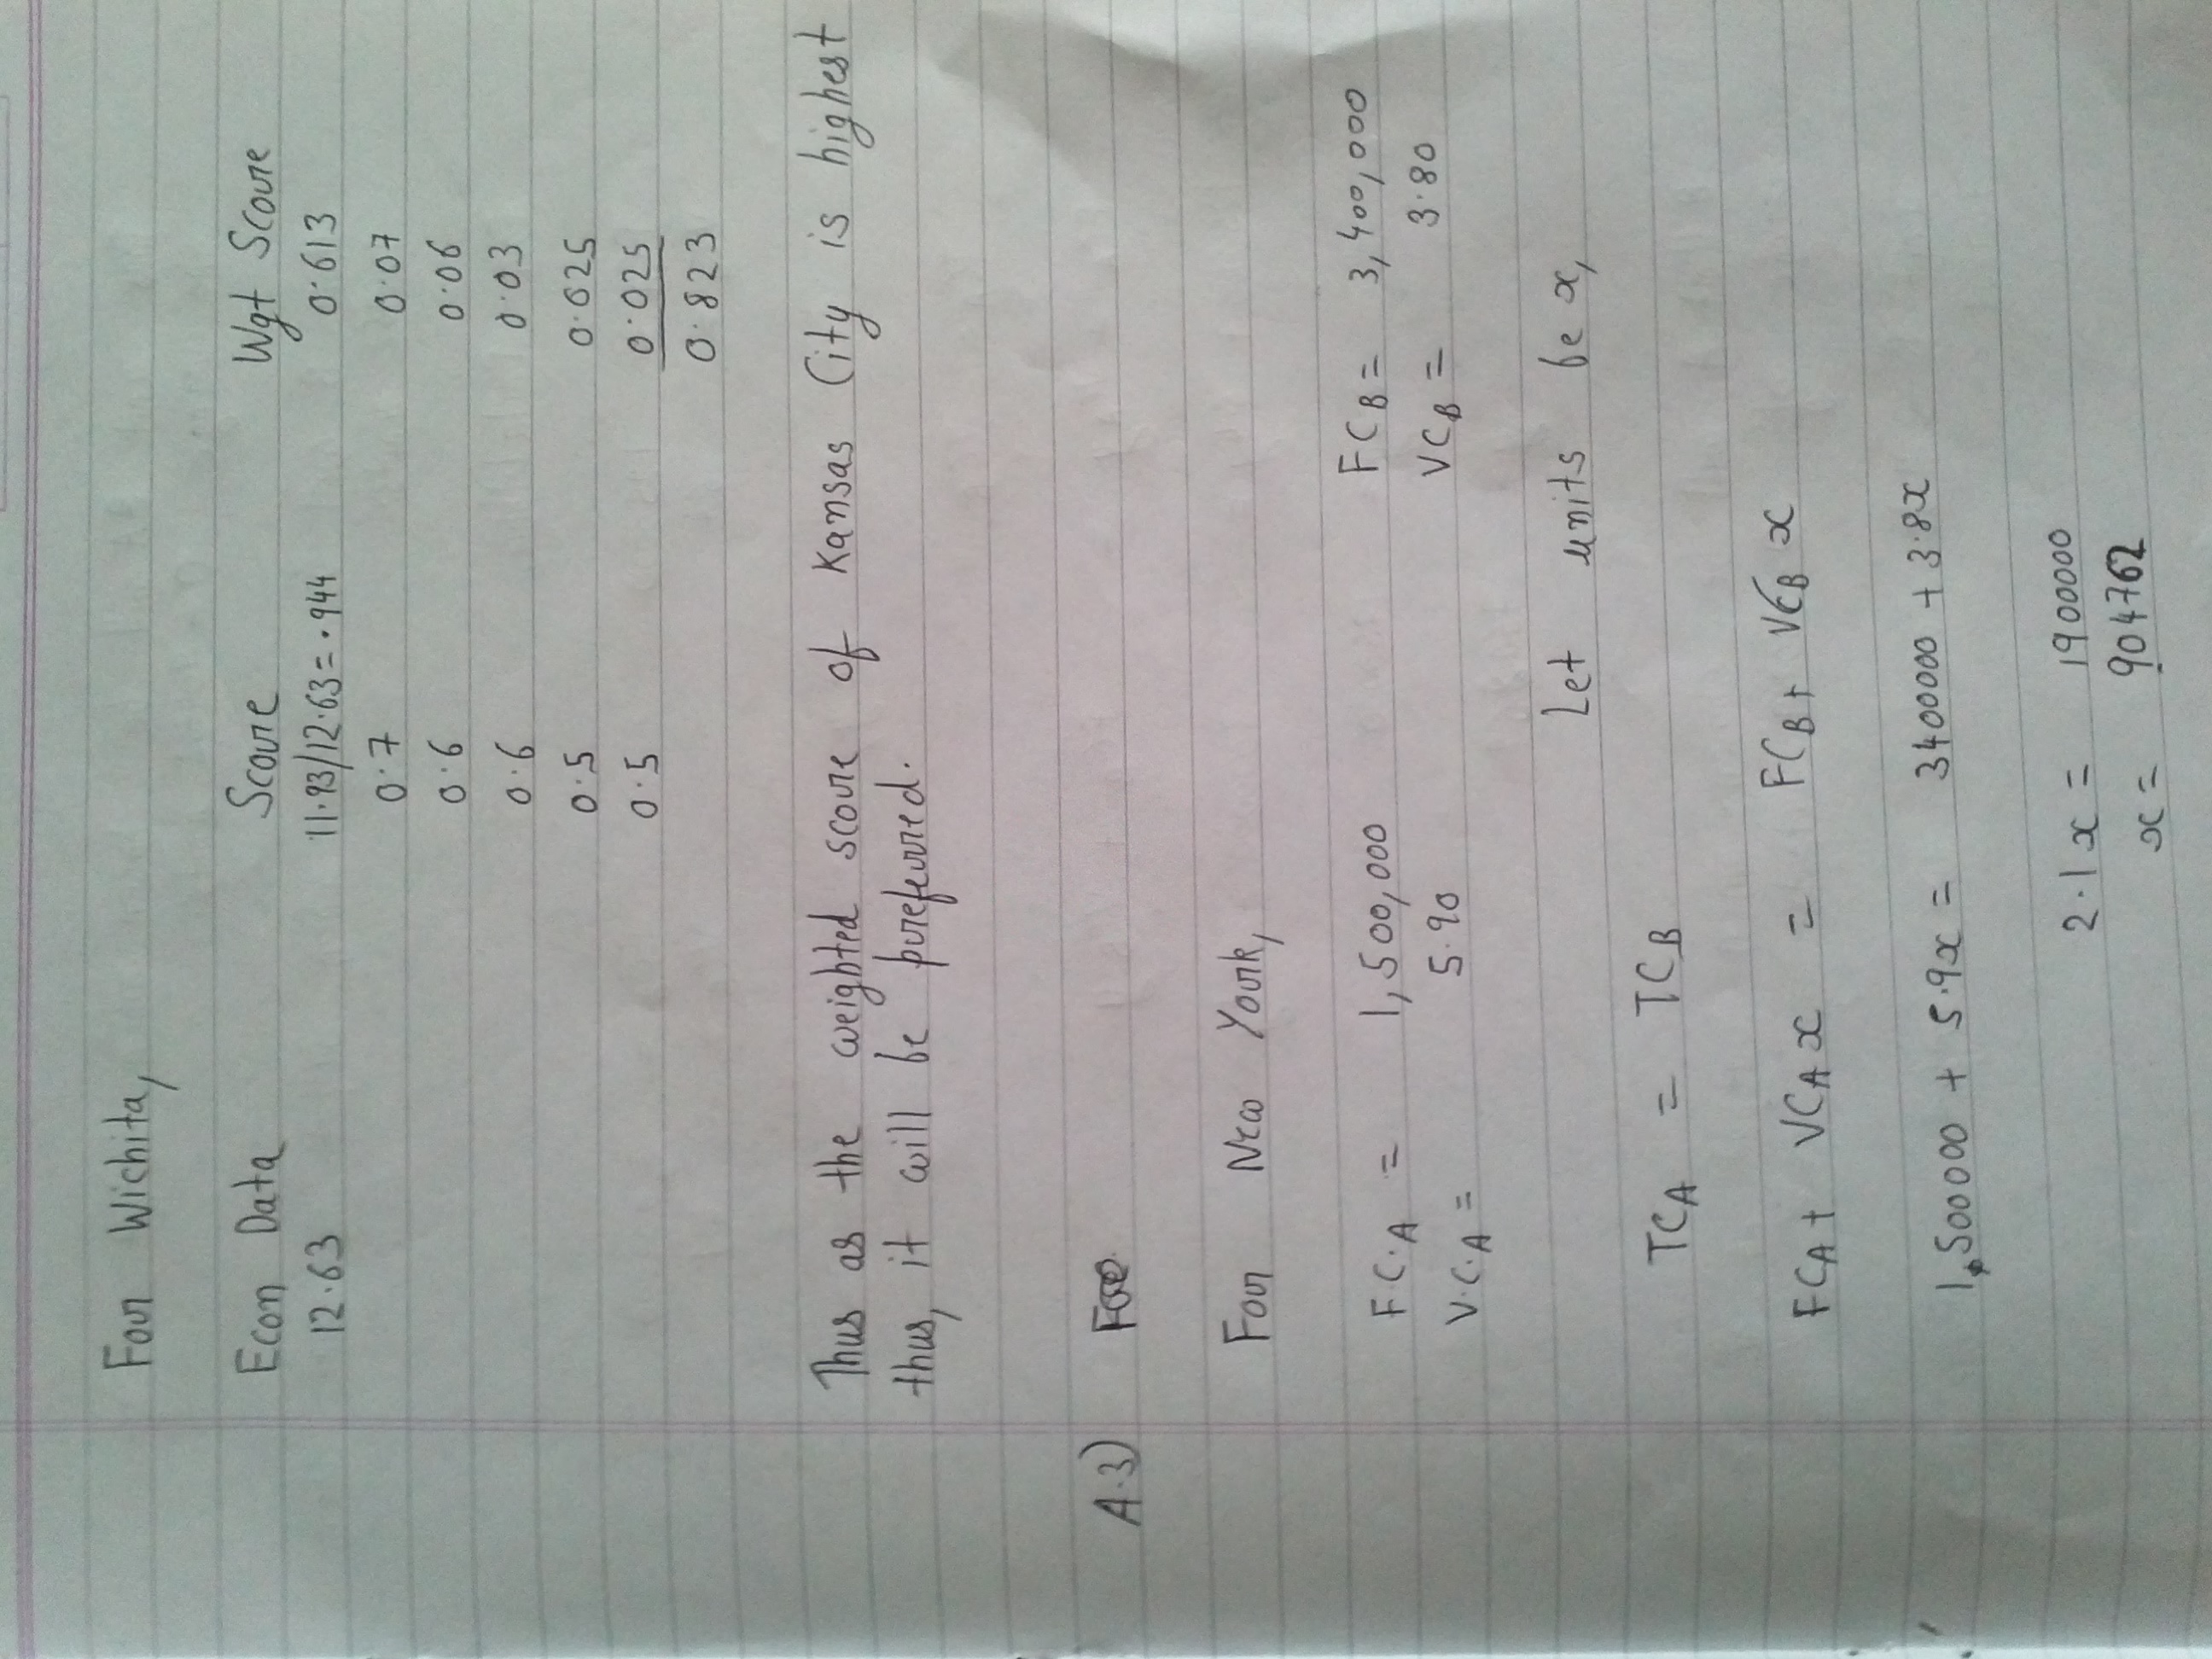 For Wichita,
Econ Data Score Wgt Score
12.63 11.93/12.63=.944 0.613
0.7 0.07
0.6 0.06
0.6 0.03
0.5 0.025
0.5 0.025
0.823
Thus as the weighted score of Kansas City is highest
thus, it will be preferred.
A.3)
For New York,
F.C.A = 1,500,000 FCB = 3,400,000
V.C.A = 5.90 VCB = 3.80
Let units be x,
TCA = TCB
FCA + VCA x = FCB + VCB x
1,500000 + 5.9x = 3400000 + 3.8x
2.1x = 1900000
x = 904762